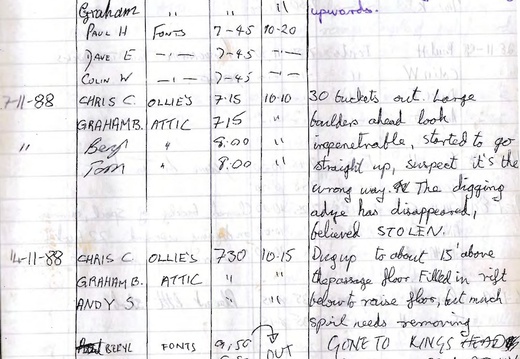 Graham " " " upwards.
PAUL H FONTS 7-45 10-20
DAVE E —"— 7-45 —"—
COLIN W —"— 7-45 —"—
7-11-88 CHRIS C. OLLIE'S 7.15 10.10 30 buckets out. Large
GRAHAM B. ATTIC 715 " boulders ahead look
" Beryl " 8.00 " inpenetrable, started to go
Tom " 8.00 " straight up, suspect it's the
wrong way. The digging
adze has disappeared,
believed STOLEN.
14-11-88 CHRIS C. OLLIE'S 730 10.15 Dug up to about 15' above
GRAHAM B. ATTIC " " the passage floor. Filled in rift
ANDY S " " below to raise floor, but much
spoil needs removing
BERYL FONTS 9.50 OUT GONE TO KINGS HEAD